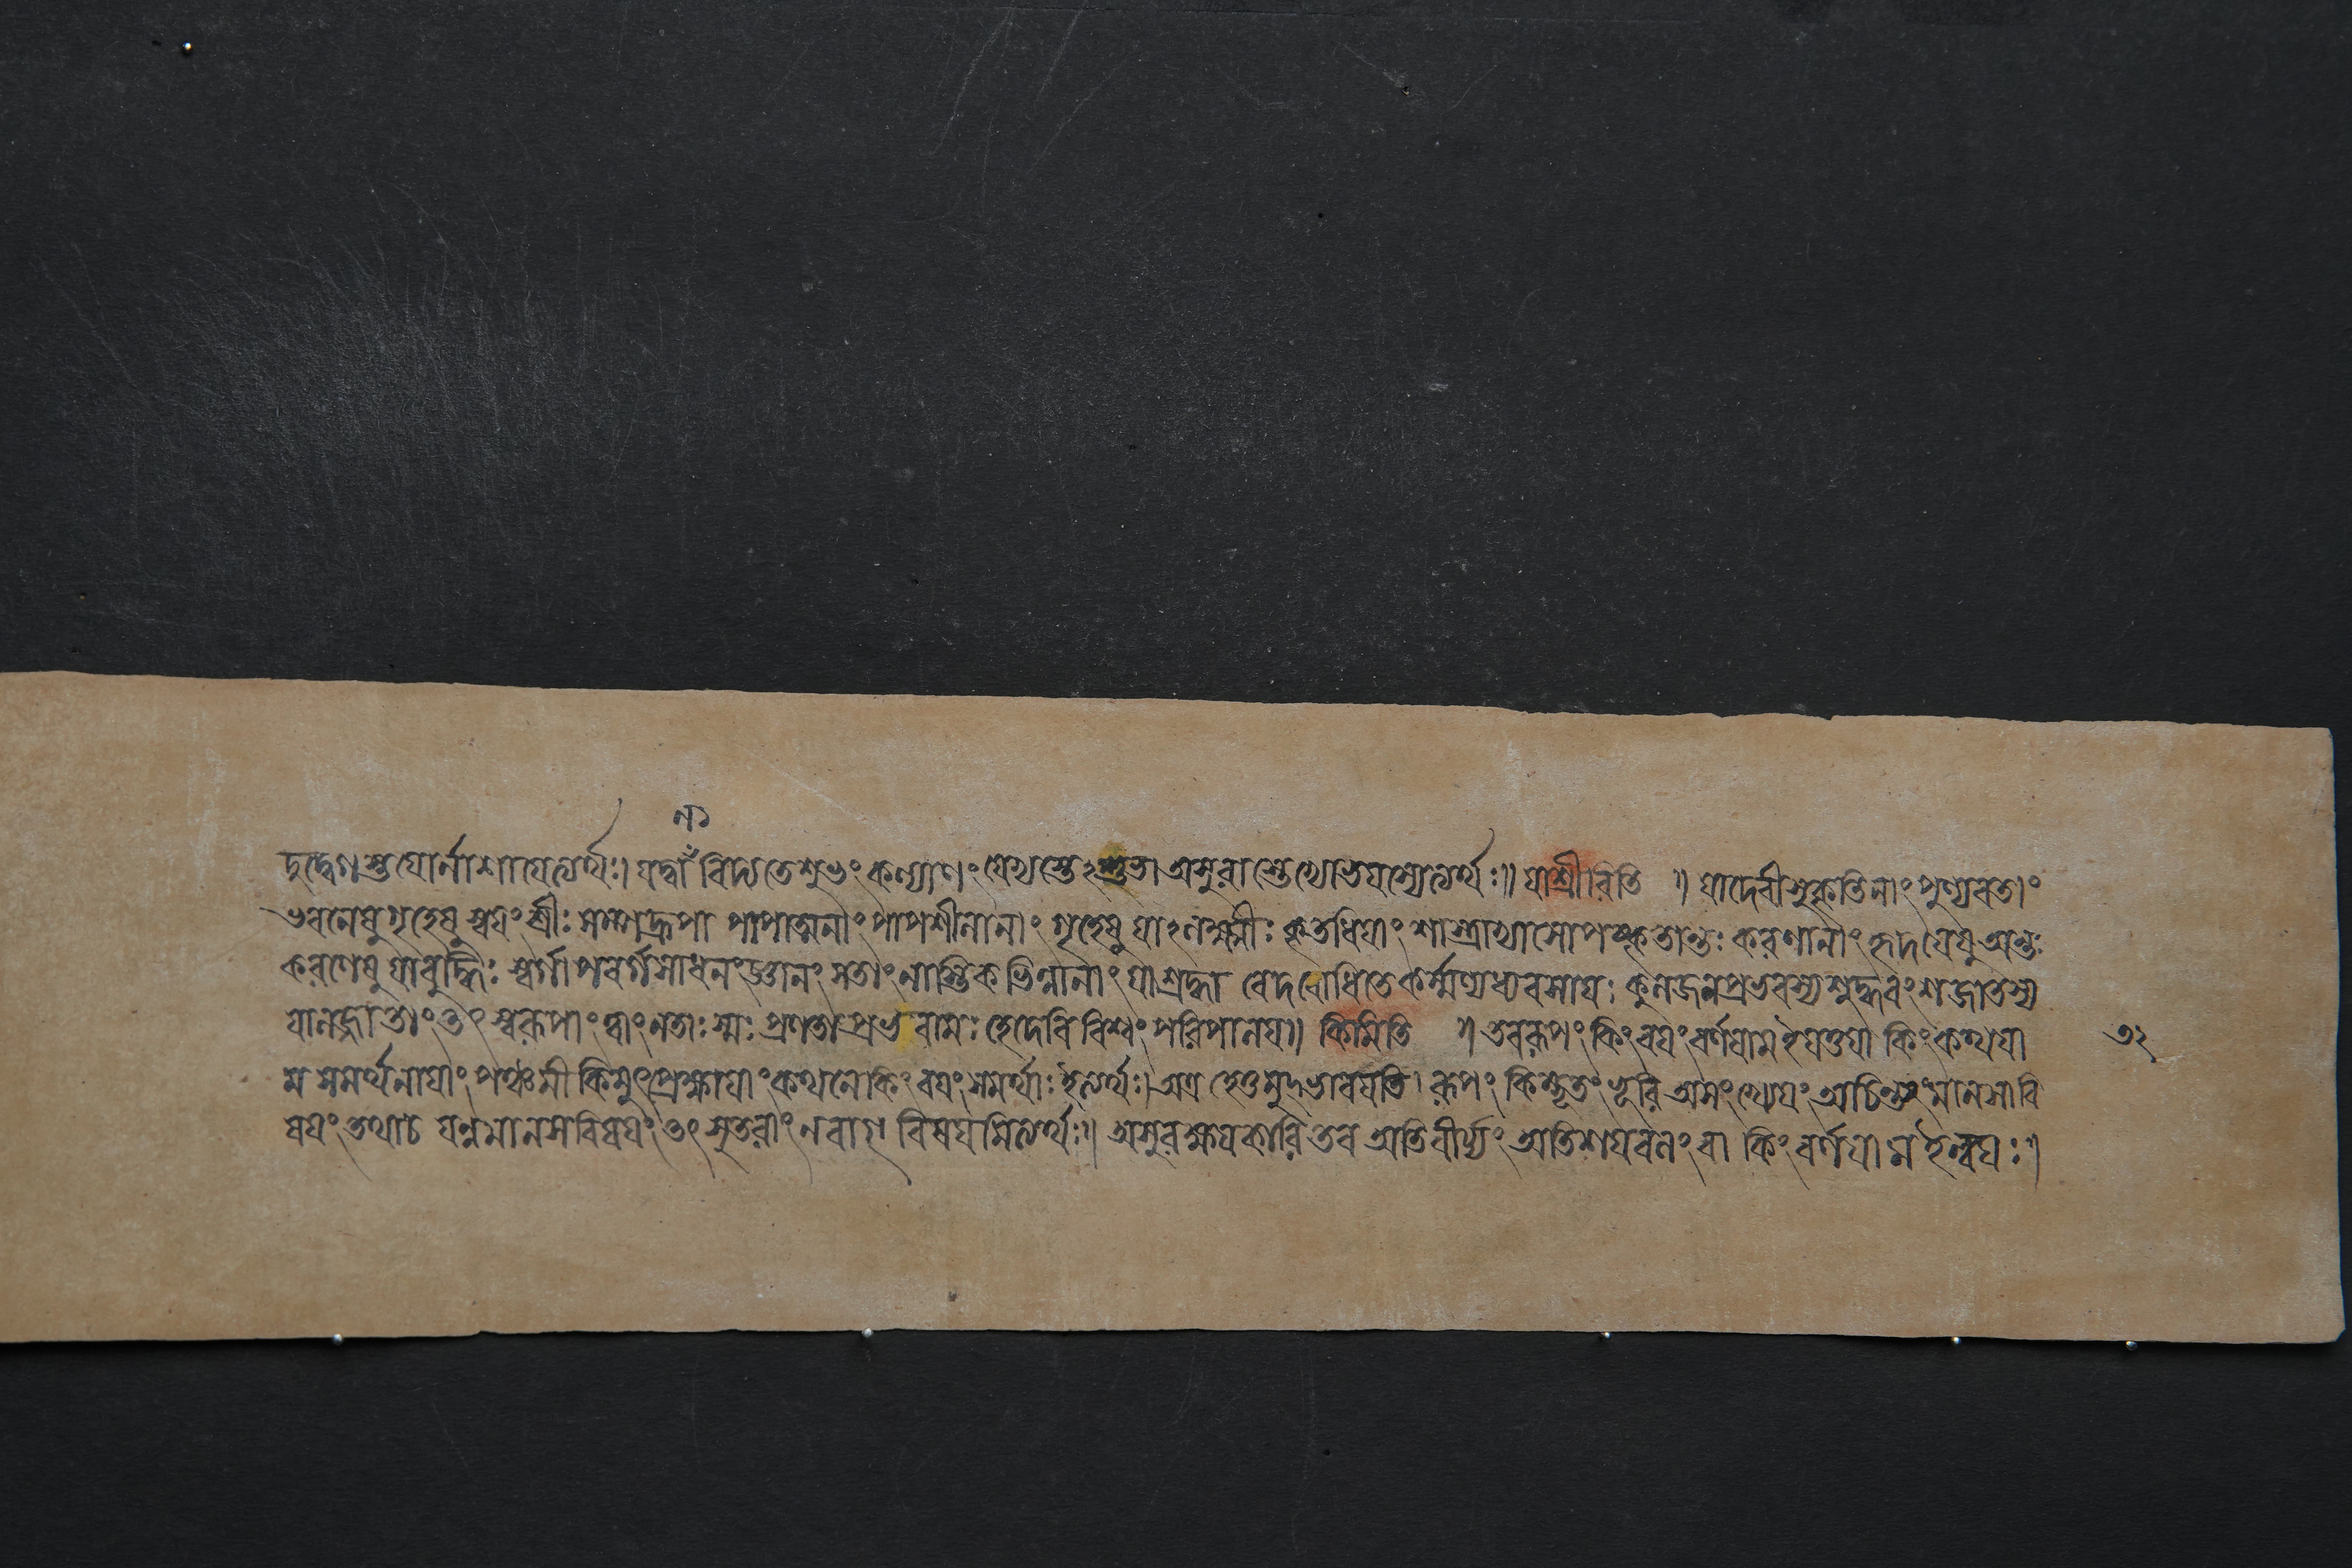 দুদ্বেগস্তযোর্নাশাযেত্যর্থঃ। যদ্বা বিদধতে শুভং কল্যাণং স্তুতা অসুরা ॥ যাশ্রীরিতি ॥ যাদেবীসুকৃতিনাং পুণ্যবতাং
ভবনেষু গৃহেষু স্বযং শ্রীঃ সম্পদ্রূপা পাপাত্মনাং পাপশীলানাং গৃহেষু যাঽলক্ষ্মীঃ কৃতধিযাং শাস্ত্রাভ্যাসোপস্কৃতান্তঃ করণানাং হৃদযেষু অন্তঃ
করণেষু যাবুদ্ধিঃ স্বর্গাপবর্গসাধনংজ্ঞানং সতাং নাস্তিকভিন্নানাং যাশ্রদ্ধা বেদবোধিতেকর্ম্মণ্যধ্যবসাযঃ কুলজনপ্রভবস্যশুদ্ধবংশজাতস্য
যালজ্জা তাং তৎ স্বরূপাং ত্বাং নতাঃ স্মঃ প্রণতা প্রভবামঃ হেদেবি বিশ্বং পরিপালয॥ কিমিতি ॥ তবরূপং কিং বযং বর্ণযাম ইযত্তযা কিং কথযা
ম সমর্থনাযাং পঞ্চমী কিমুৎপ্রেক্ষাযাং কথনে কিং বযং সমর্থাঃ ইত্যর্থঃ। অত্র হেতুমুদ্ভাবযতি। রূপং কিম্ভূতং ভূরি অসংখ্যেযং অচিন্ত্যং মানসাবি
ষযং তথাচ যন্নমানসবিষযং তৎ সুতরাং নবাগ্ বিষযমিত্যর্থঃ॥ অসুরক্ষযকারি তব অতিবীর্য্যং অতিশযবলং বা কিং বর্ণযাম ইত্যন্বযঃ।
৩২